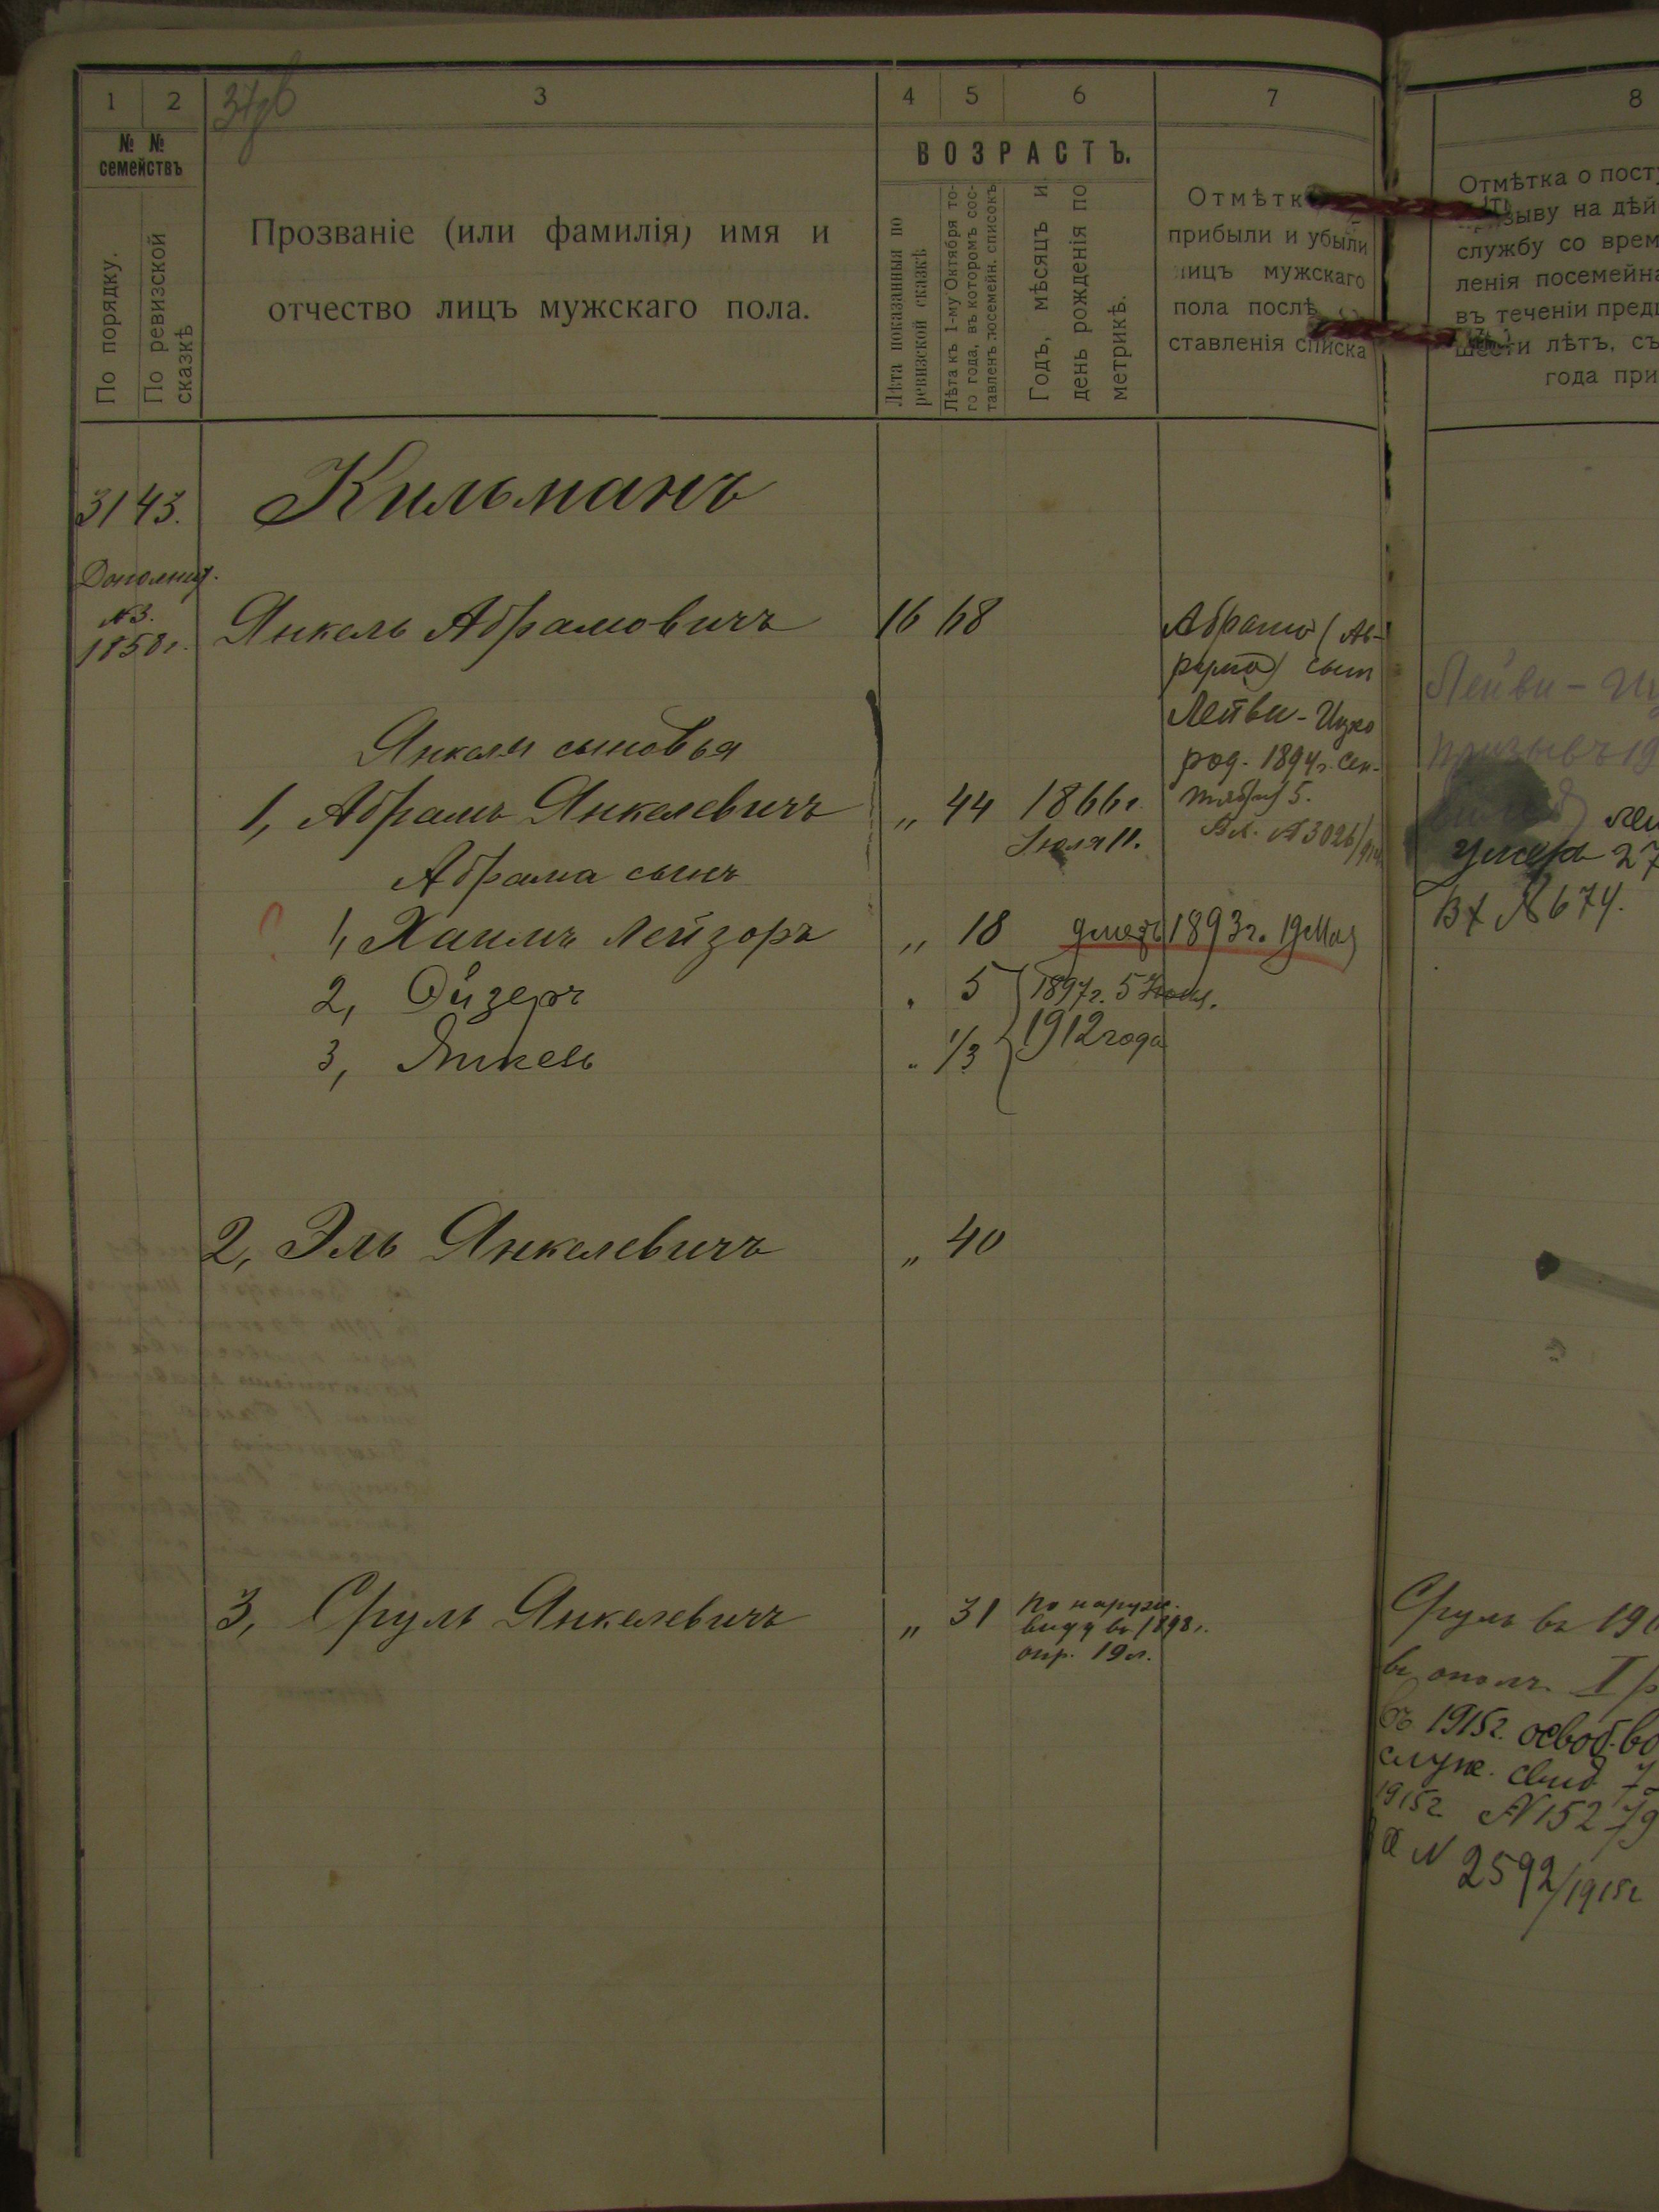 1 2 3 4 5 6 7 8
№ № семействъ
По порядку.
По ревизской сказкѣ
Прозваніе (или фамилія) имя и
отчество лицъ мужскаго пола.
ВОЗРАСТЪ.
Лѣта показанныя по
ревизской сказкѣ
Лѣта къ 1-му Октября то-
го года, въ которомъ сос-
тавленъ посемейн. списокъ
Годъ, мѣсяцъ и
день рожденія по
метрикѣ.
Отмѣтк
прибыли и убыли
лицъ мужскаго
пола послѣ
ставленія списка
Отмѣтка о пост
зыву на дѣй
службу со врем
ленія посемейна
въ теченіи пред
шести лѣтъ, съ
года при
31 43. Кильманъ
Дополнит.
№3.
1858г.
Янкель Абрамовичъ 16 68
Абрамъ (Ав-
румъ) сын
Лейви-Ицко
род. 1894г. Сен-
тября 5.
Вх. №3026/
Янкеля сыновья
1, Абрамъ Янкелевичъ „ 44 1866г.
Іюля 11.
Абрама сынъ
? 1, Хаимъ Лейзоръ „ 18 умеръ 1893г. 19 Мая
2, Ойзеръ „ 5 1897г. 5 Іюля.
3, Янкель „ 1/3 1912 года
Лейви - Иц
призывъ 19
умеръ 27
Вх №674.
2, Эль Янкелевичъ „ 40
3, Сруль Янкелевичъ „ 31 по наруж.
виду въ 1898г.
опр. 19 л.
Сруль въ 191
въ ополч. I р
въ 1915г. освоб. во
служ. свид.
1915г №15279
Вх N 2592/1915г